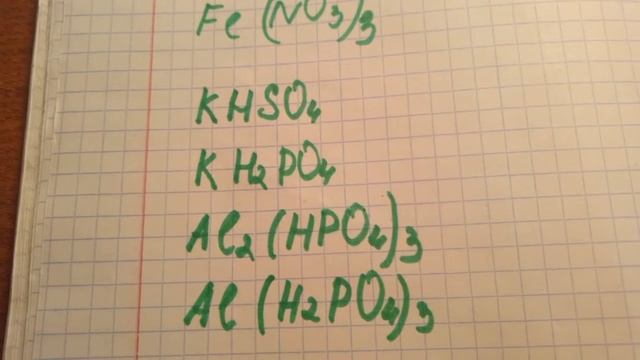 Fe(NO3)3
KHSO4
KH2PO4
Al2(HPO4)3
Al(H2PO4)3